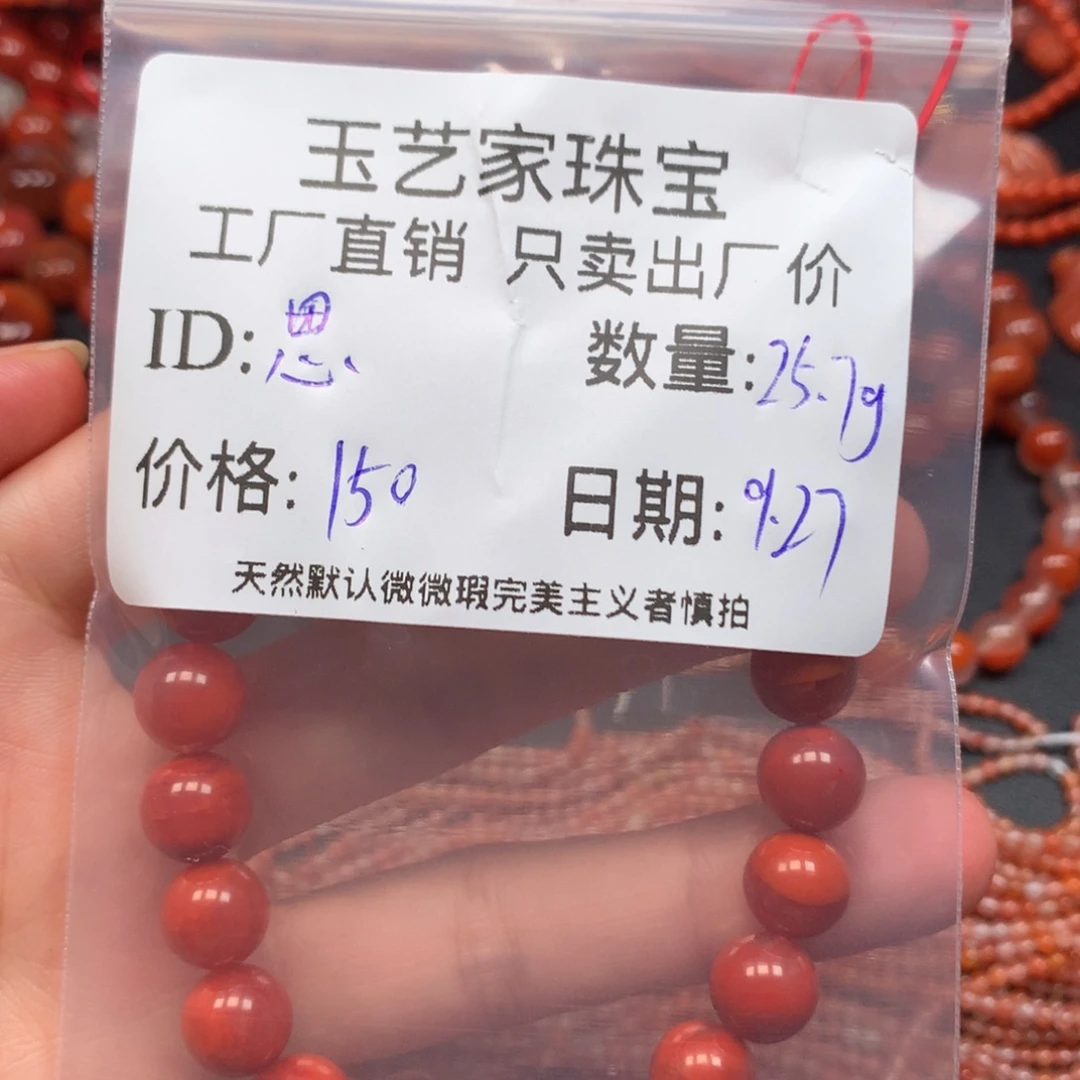 玉艺家珠宝
工厂直销 只卖出厂价
ID:思 数量:25.7g
价格:150 日期:9.27
天然默认微微瑕完美主义者慎拍